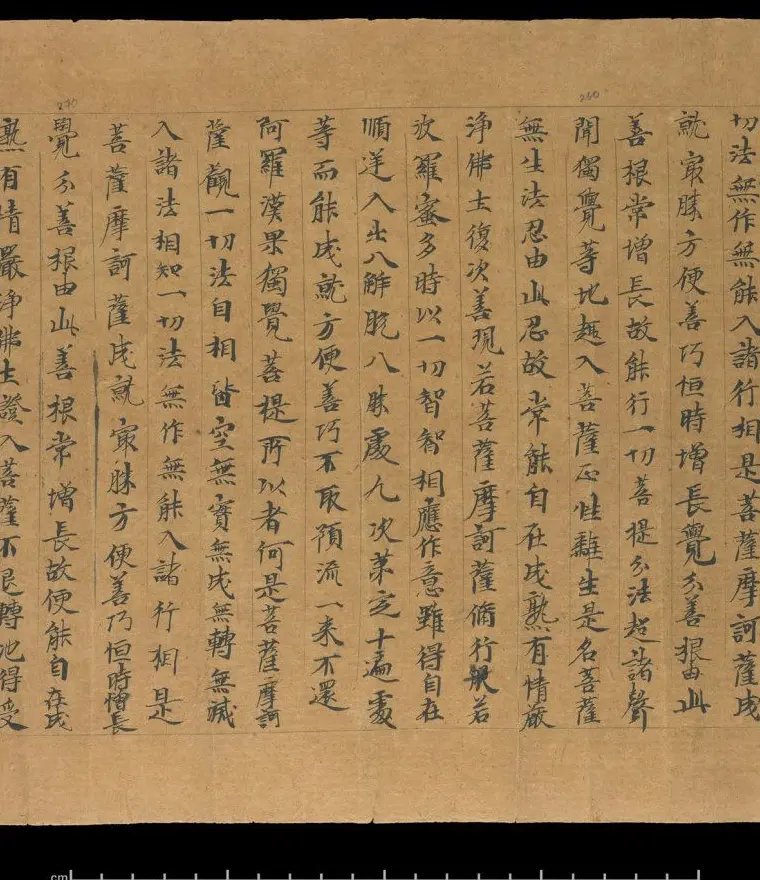 切法無作無能入諸行相是菩薩摩訶薩成
就冣勝方便善巧恒時增長覺分善根由此
善根常增長故能行一切菩提分法超諸聲
聞獨覺等地趣入菩薩正性離生是名菩薩
無生法忍由此忍故常能自在成熟有情嚴
淨佛土復次善現若菩薩摩訶薩脩行般若
波羅蜜多時以一切智智相應作意雖得自在
順逆入出八解脫八勝處九次第定十遍處
等而能成就方便善巧不取預流一来不還
阿羅漢果獨覺菩提所以者何是菩薩摩訶
薩觀一切法自相皆空無實無成無轉無滅
入諸法相知一切法無作無能入諸行相是
菩薩摩訶薩成就冣勝方便善巧恒時增長
覺分善根由此善根常增長故便能自在成
熟有情嚴淨佛土證入菩薩不退轉地得受
260
270
cm